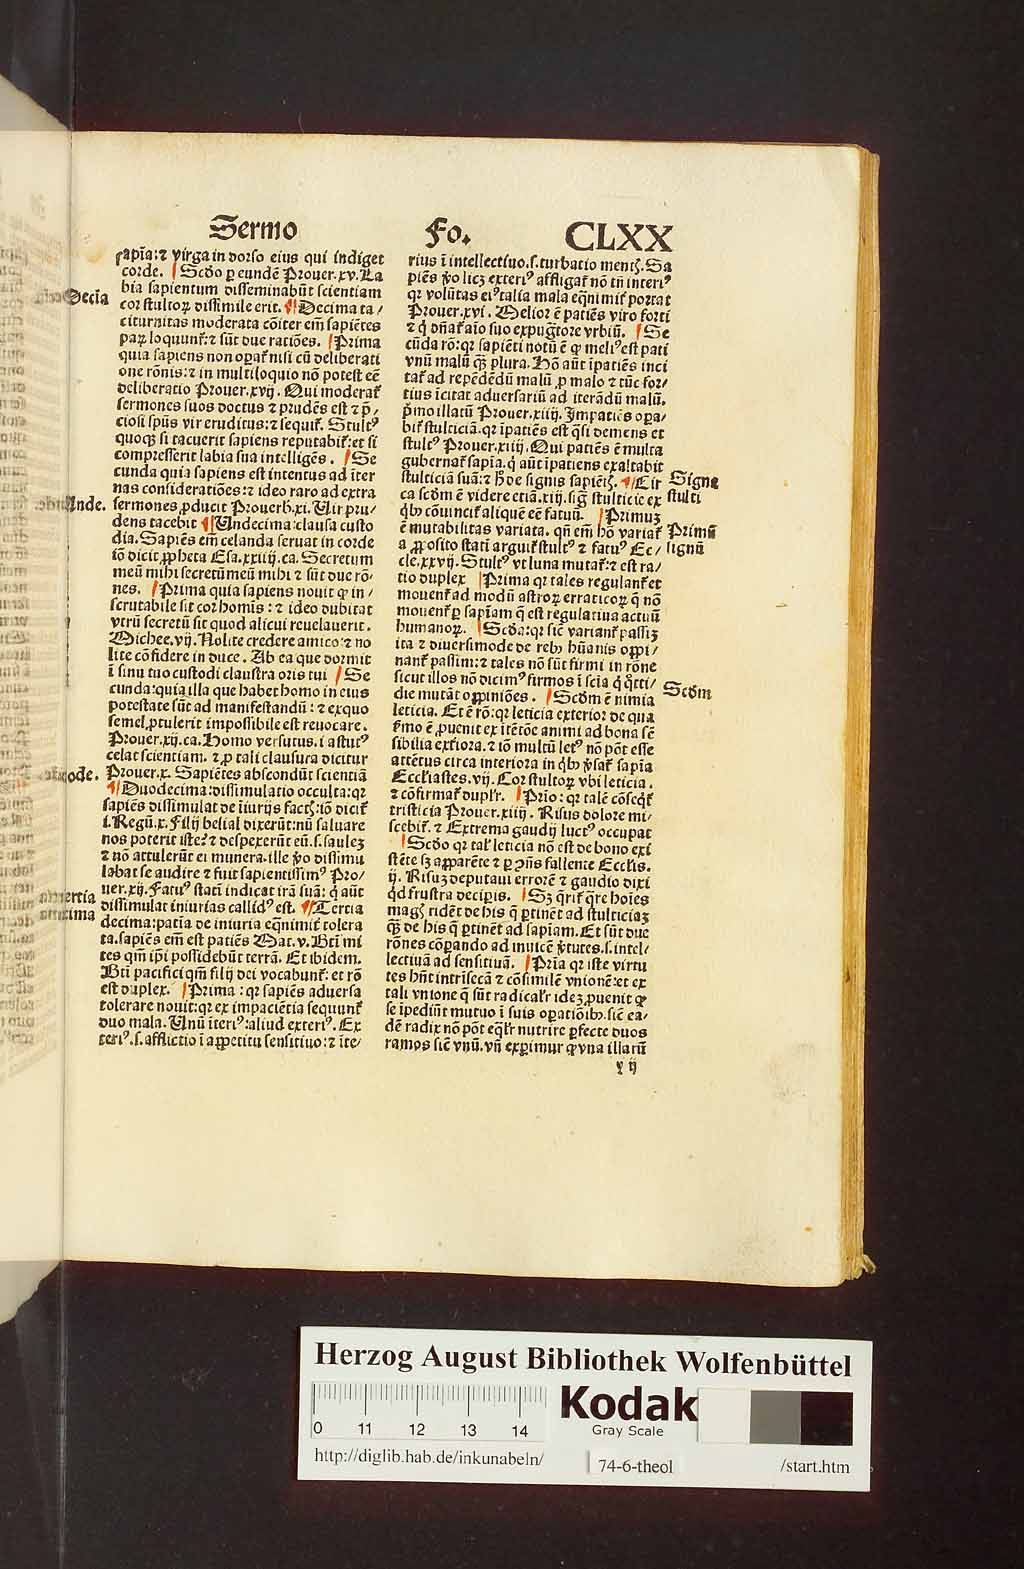 Sermo Fo. CLXX
sapīa: ⁊ virga in dorso eius qui indiget
corde. Scďo ꝑ eundē Prouer. xv. La
bia sapientum disseminabūt scientiam
cor stultoꝝ dissimile erit. ¶ Decima ta/
citurnitas moderata cōiter em̄ sapiētes
paꝝ loquunt᷑: ⁊ sūt due ratiōes. Prima
quia sapiens non oꝑat᷑ nisi cū deliberati
one rōnis: ⁊ in multiloquio nō potest eē
deliberatio Prouer. xvij. Qui moderat᷑
sermones suos doctus ⁊ prudēs est ⁊ p̄/
ciosi spūs vir eruditus: ⁊ sequit᷑. Stultꝰ
quoqꝫ si tacuerit sapiens reputabit᷑: et si
compresserit labia sua intelligēs. Se
cunda quia sapiens est intentus ad īter
nas consideratiōes: ⁊ ideo raro ad extra
sermones ꝓducit Prouerb. xi. Uir pru/
dens tacebit ¶ Undecima: clausa custo
dia. Sapiēs em̄ celanda seruat in corde
iō dicit ꝓpheta Esa. xxiiij. ca. Secretum
meū mihi secretū meū mihi ⁊ sūt due rō/
nes. Prima quia sapiens nouit ꝙ in/
scrutabile sit cor homīs: ⁊ ideo dubitat
vtrū secretū sit quod alicui reuelauerit.
Michee. vij. Nolite credere amico ⁊ no
lite cōfidere in duce. Ab ea que dormit
ī sinu tuo custodi claustra oris tui Se
cunda: quia illa que habet homo in eius
potestate sūt ad manifestandū: ⁊ exquo
semel ꝓtulerit impossibile est reuocare.
Prouer. xij. ca. Homo versutus. i astutꝰ
celat scientiam. ⁊ ꝓ tali clausura dicitur
Prouer. x. Sapiētes abscondūt scientiā
¶ Duodecima: dissimulatio occulta: qꝛ
sapiēs dissimulat de īiurijs factꝭ: iō dicit᷑
i. Regū. x. Filij belial dixerūt: nū saluare
nos poterit iste? ⁊ despexerūt eū. s. saulez
⁊ nō attulerūt ei munera. ille v̄o dissimu
labat se audire ⁊ fuit sapientissimꝰ Pro/
uer. xij. Fatuꝰ statī indicat irā suā: q̇ aūt
dissimulat iniurias callidꝰ est. ¶ Tertia
decima: patīa de iniuria eq̄nimit᷑ tolera
ta. sapiēs em̄ est patiēs Mat. v. Btī mi
tes qm̄ ip̄i possidebūt terrā. Et ibidem.
Btī pacifici qm̄ filij dei vocabunt᷑: et rō
est duplex. Prima: qꝛ sapiēs aduersa
tolerare nouit: qꝛ ex impaciētia sequunt᷑
duo mala. Unū īteriꝰ: aliud exteriꝰ. Ex
teriꝰ. s. afflictio ī appetitu sensitiuo: ⁊ īte/
Decia
Unde.
Duode.
Tertia
decima
rius ī intellectiuo. s. turbatio mentꝭ. Sa
piēs v̄o licꝫ exteriꝰ affligat᷑ nō tn̄ interiꝰ
qꝛ volūtas eiꝰ talia mala eq̄nimit᷑ portat
Prouer. xvi. Melior ē patiēs viro forti
⁊ q̇ dn̄at᷑ aīo suo expugn̄tore vrbiū. Se
cūda rō: qꝛ sapiēti notū ē ꝙ meliꝰ est pati
vnū malū qꝫ plura. Hō aūt īpatiēs inci
tat᷑ ad repēdēdū malū ꝓ malo ⁊ tūc for/
tius īcitat aduersariū ad iterādū malū.
p̄mo illatū Prouer. xiiij. Impatiēs oꝑa/
bit᷑ stulticiā. qꝛ īpatiēs est q̄si demens et
stultꝰ Prouer. xiiij. Qui patiēs ē multa
gubernat᷑ sapīa. q̇ aūt īpatiens exaltabit
stulticiā suā: ⁊ h̄ de signis sapiētꝭ. ¶ Cir
ca scďm ē videre etiā. xiij. siḡ stulticie ex
q̇bꝰ cōuincit᷑ aliquē eē fatuū. Primuꝫ
ē mutabilitas variata. qn̄ em̄ hō variat᷑
a ꝓposito statī arguit᷑ stultꝰ ⁊ fatuꝰ Ec/
cle. xxvij. Stultꝰ vt luna mutat᷑: ⁊ est ra/
tio duplex Prima qꝛ tales regulant᷑ et
mouent᷑ ad modū astroꝝ erraticoꝝ q̄ nō
mouent᷑ ꝑ sapīam q̄ est regulatiua actuū
humanoꝝ. Scďa: qꝛ sic̄ variant᷑ passiꝫ
ita ⁊ diuersimode de rebꝰ hūanis oppi/
nant᷑ passim: ⁊ tales nō sūt firmi in rōne
sicut illos nō dicimꝰ firmos ī scīa q̇ q̊tti/
die mutāt oppiniōes. Scďm ē nimia
leticia. Et ē rō: qꝛ leticia exterior de qua
p̄mo ē ꝓuenit ex ītētōe animi ad bona sē
sibilia ext̄iora. ⁊ iō multū letꝰ nō pōt esse
attētus circa interiora in q̇bꝰ ꝯsꝰtat᷑ sapīa
Eccl̄iastes. vij. Cor stultoꝝ vbi leticia.
⁊ cōfirmat᷑ dupl᷑r. Prīo: qꝛ talē cōseq̄t᷑
tristicia Prouer. xiiij. Risus dolore mi/
scebit᷑. ⁊ Extrema gaudij luctꝰ occupat
Scďo qꝛ tal᷑ leticia nō est de bono exi
stēte sꝫ apparēte ⁊ ꝑ ꝯn̄s fallente Eccl̄s.
ij. Risuꝫ deputaui errorē ⁊ gaudio dixi
q̇d frustra deciꝑis. Sꝫ q̄rit᷑ q̄re hoīes
magꝭ ridēt de his q̄ ꝑtinēt ad stulticiaꝫ
qꝫ de his q̄ ꝑtinēt ad sapīam. Et sūt due
rōnes cōꝑando ad inuicē v̄tutes. s. intel/
lectiuā ad sensitiuā. Prīa qꝛ iste virtu
tes hn̄t intrīsecā ⁊ cōsimilē vnionē: et ex
tali vnione q̄ sūt radical᷑r ideꝫ ꝓuenit ꝙ
se īpediūt mutuo ī suis oꝑatiōibꝰ. sic̄ ea/
dē radix nō pōt eq̄l᷑r nutrire ꝑfecte duos
ramos sic̄ vnū. vn̄ experimur ꝙ vna illarū
Signa
stulti
Primū
signū
Scďm
y ij
Herzog August Bibliothek Wolfenbüttel
0 11 12 13 14
Kodak
Gray Scale
http://diglib.hab.de/inkunabeln/ 74-6-theol /start.htm